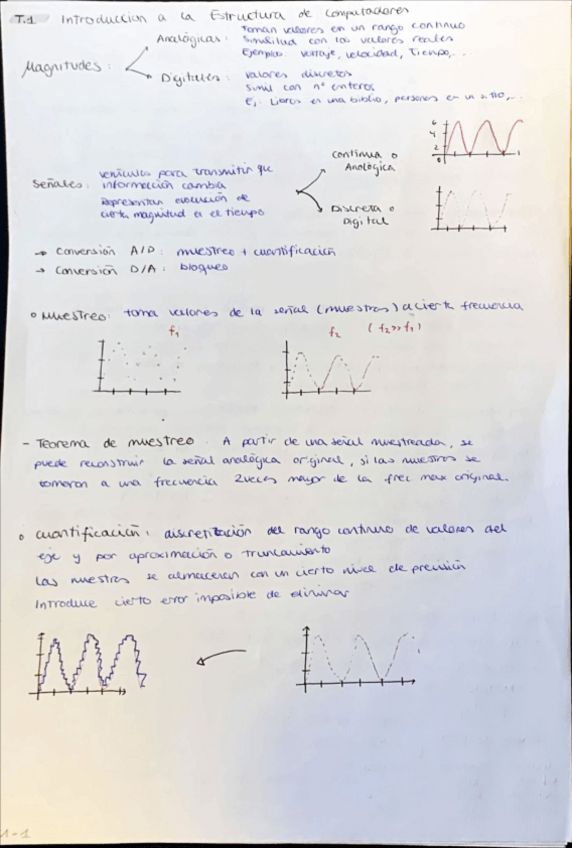 T.1 Introduccion a la Estructura de Computadores
Magnitudes:
Analógicas: Toman valores en un rango continuo
Similitud con los valores reales
Ejemplos: Voltaje, velocidad, Tiempo,...
Digitales: valores discretos
Simil con nº enteros
Ej: Libros en una biblio, personas en un sitio,...
Señales: vehículos para transmitir que
información cambia
Representan evolución de
cierta magnitud en el tiempo
Continua o
Analógica
6
4
2
0
Discreta o
Digital
→ Conversión A/D: muestreo + cuantificación
→ Conversión D/A: bloqueo
o Muestreo: toma valores de la señal (muestras) a cierta frecuencia
f1
f2 (f2>>f1)
- Teorema de muestreo. A partir de una señal muestreada, se
puede reconstruir la señal analógica original, si las muestras se
tomaron a una frecuencia 2 veces mayor de la frec max original.
o Cuantificación: discretización del rango continuo de valores del
eje y por aproximación o truncamiento
Las muestras se almacenan con un cierto nivel de precisión
Introduce cierto error imposible de eliminar
1-1